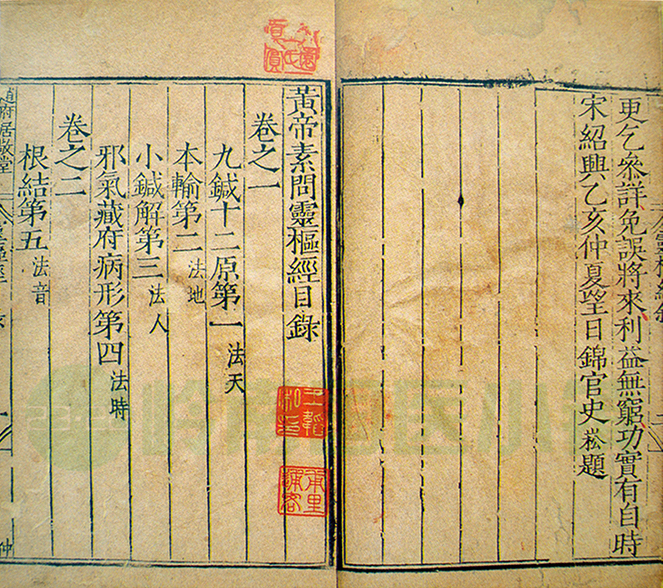 更乞參詳免誤將來利益無窮功實有自時
宋紹興乙亥仲夏望日錦官史崧題
黃帝素問靈樞經目錄
卷之一
九鍼十二原第一 法天
本輸第二 法地
小鍼解第三 法人
邪氣藏府病形第四 法時
卷之二
根結第五 法音
府居敬堂